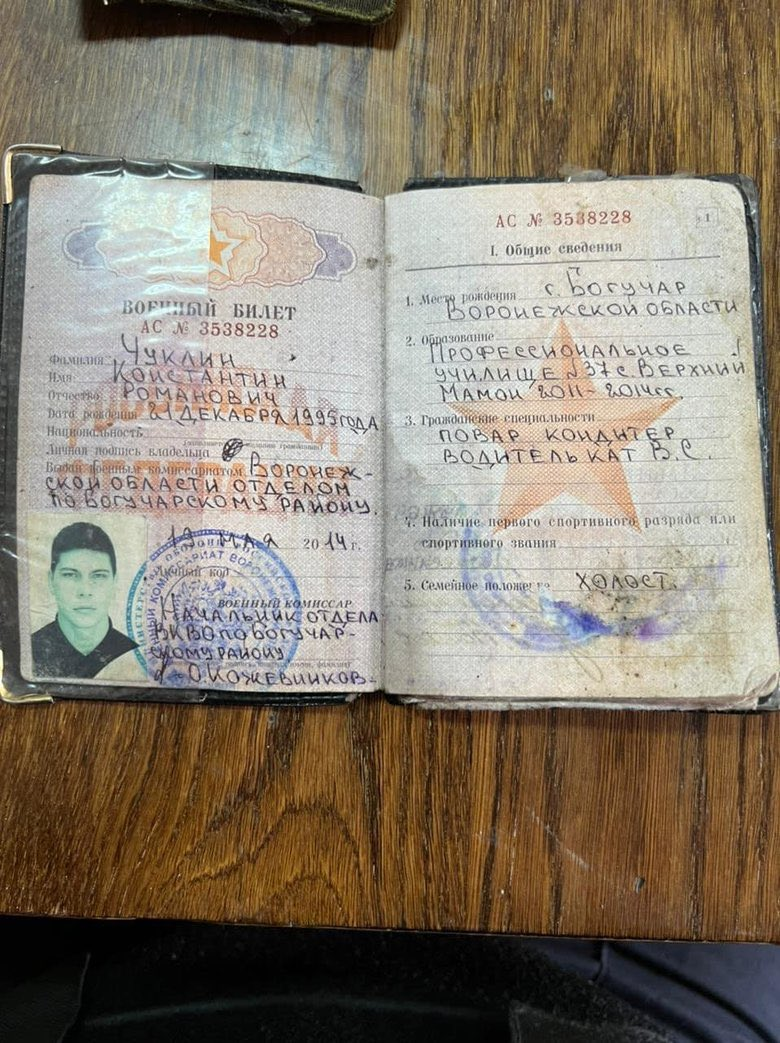 ВОЕННЫЙ БИЛЕТ
АС № 3538228
Фамилия ЧУКЛИН
Имя КОНСТАНТИН
Отчество РОМАНОВИЧ
Дата рождения 21 ДЕКАБРЯ 1995 ГОДА
Национальность
Личная подпись владельца
Выдан военным комиссариатом ВОРОНЕЖ-
СКОЙ ОБЛАСТИ ОТДЕЛОМ
ПО БОГУЧАРСКОМУ РАЙОНУ.
МАЯ 2014 г.
Личный код
ВОЕННЫЙ КОМИССАР
НАЧАЛЬНИК ОТДЕЛА
ВКВО ПО БОГУЧАР-
СКОМУ РАЙОНУ
О.КОЖЕВНИКОВ
АС № 3538228
1
I. Общие сведения
1. Место рождения г. БОГУЧАР
ВОРОНЕЖСКОЙ ОБЛАСТИ
2. Образование
ПРОФЕССИОНАЛЬНОЕ
УЧИЛИЩЕ №37 с. ВЕРХНИЙ
МАМОН 2011-2014гг.
3. Гражданские специальности
ПОВАР КОНДИТЕР
ВОДИТЕЛЬ КАТ В.С.
4. Наличие первого спортивного разряда или
спортивного звания
5. Семейное положение ХОЛОСТ.